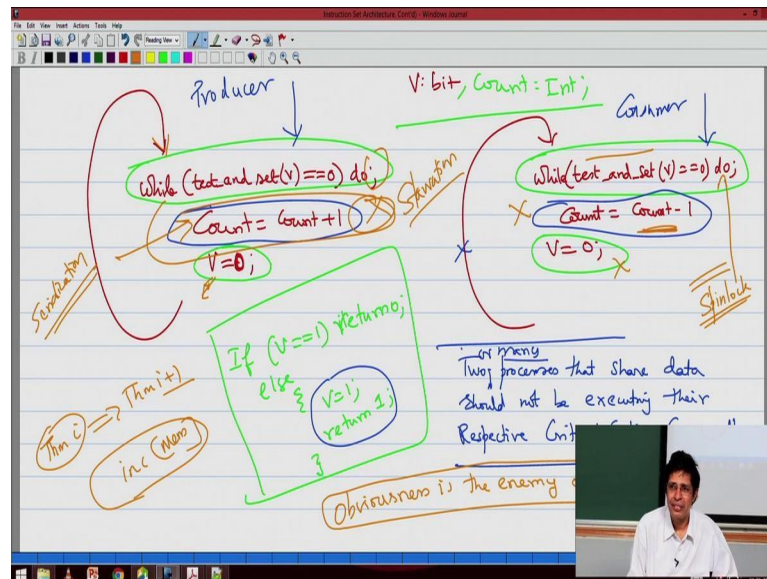 Instruction Set Architecture, Cont'd) - Windows Journal
File Edit View Insert Actions Tools Help
Reading View
B I
Producer
V: bit, Count = Int;
Consumer
while (test_and_set(v) == 0) do;
Count = Count + 1
V = 0;
Starvation
Serialization
while (test_and_set (v) == 0) do;
Count = Count - 1
V = 0;
Spinlock
If (V == 1) return 0;
else
{ V = 1;
return 1;
}
Thm i => Thm i+1
inc (mem)
or many
Two processes that share data
should not be executing their
Respective
Obviousness is the enemy